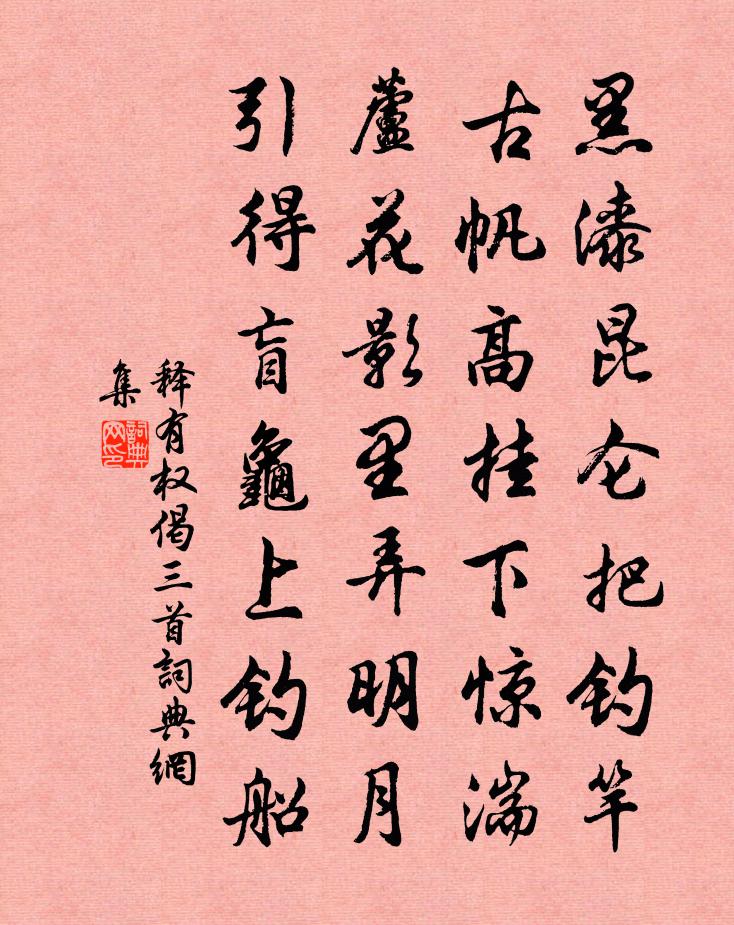 黑漆昆仑把钓竿
古帆高挂下惊湍
蘆花影里弄明月
引得盲龜上钓船
释有权偈三首詞典網
集
詞典
网印